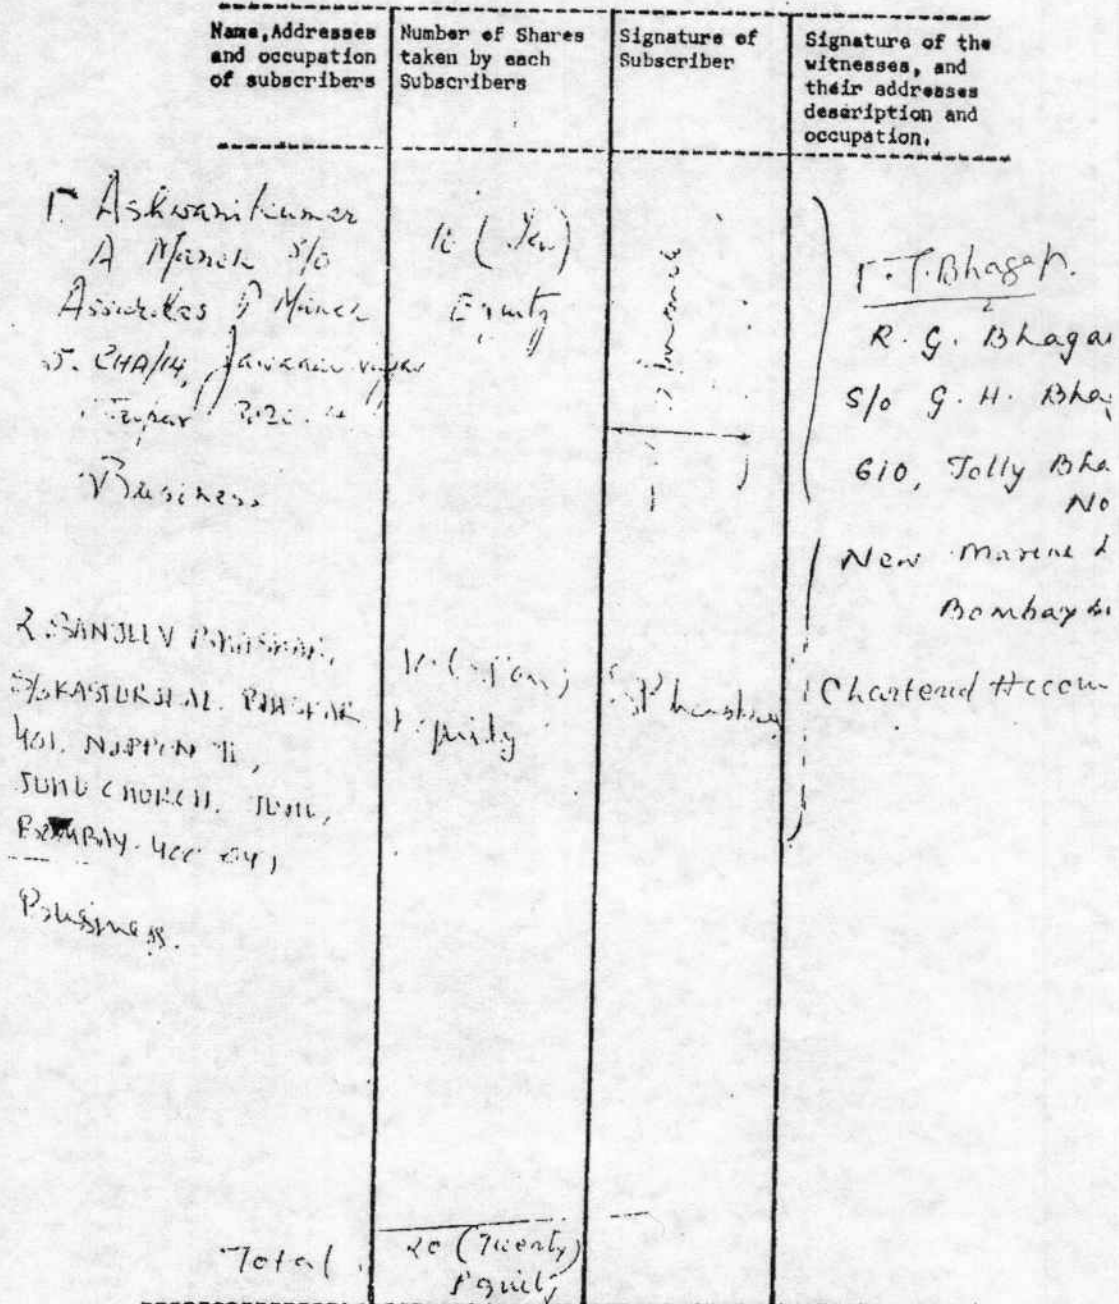 Name, Addresses
and occupation
of subscribers
Number of Shares
taken by each
Subscribers
Signature of
Subscriber
Signature of the
witnesses, and
their addresses
description and
occupation.
1. Ashwanikumar
A Manek s/o
Manek
5. CHA/14,
Business
10 (Ten)
Equity
R. G. Bhaga
S/o G. H. Bha
610, Jolly Bha
No
New Marine L
Bombay
Chartered Accoun
2. SANJEEV BHASKAR,
S/o KASTURILAL BHASKAR
401, NIPPON II,
JUHU CHURCH, JUHU,
BOMBAY-400 041
Business.
10 (Ten)
Equity
Total
20 (Twenty)
Equity